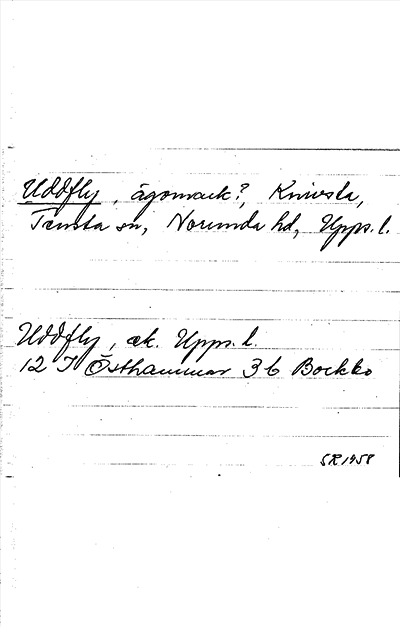 Uddfly, ägomark?, Knivsta,
Tensta sn, Norunda hd, Upps. l.
Uddfly, ek. Upps. l.
12 I Östhammar 3 b Bockbo
SR 1958